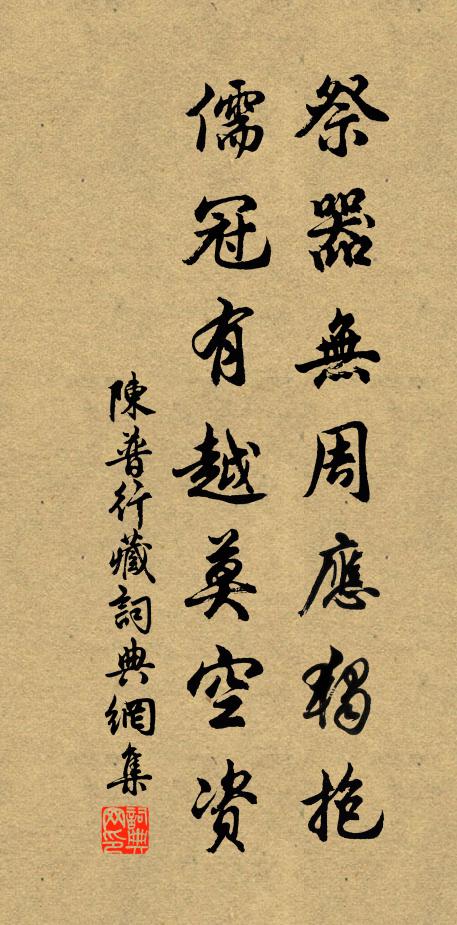 祭器無周應獨抱
儒冠有越莫空資
陳普行藏詞典網集
詞典网印